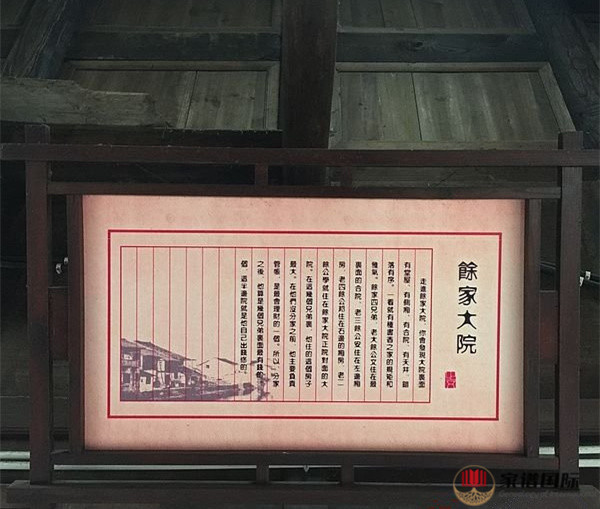 餘家大院
走進餘家大院，你會發現大院裏面
有堂屋、有側廂、有合院、有天井，錯
落有序，一看就有種書香之家的規矩和
雅氣。餘家四兄弟，老大餘公文住在最
裏面的合院，老三餘公安住在左邊廂
房，老四餘公治住在右邊的廂房，老二
餘公學就住在餘家大院正院對面的大
院。在這幾個兄弟裏，他住的這個房子
最大。在他們沒分家之前，他主要負責
管帳，是最會理財的一個。所以，分家
之後，他算是幾個兄弟裏面最有錢的
個，這半邊院就是他自己出錢修的。
家谱国际